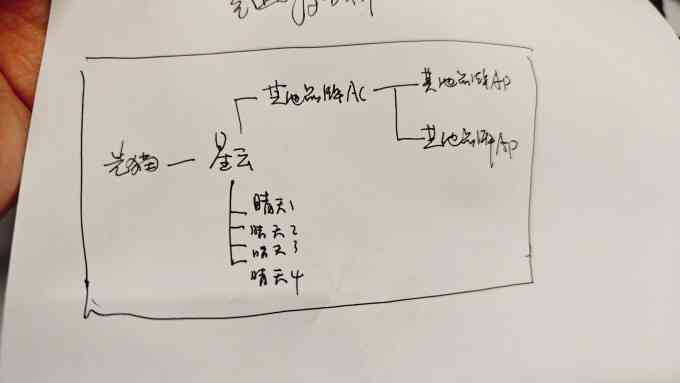 其他品牌AC
其他品牌AP
其他品牌AP
光猫
星云
晴天1
晴天2
晴天3
晴天4